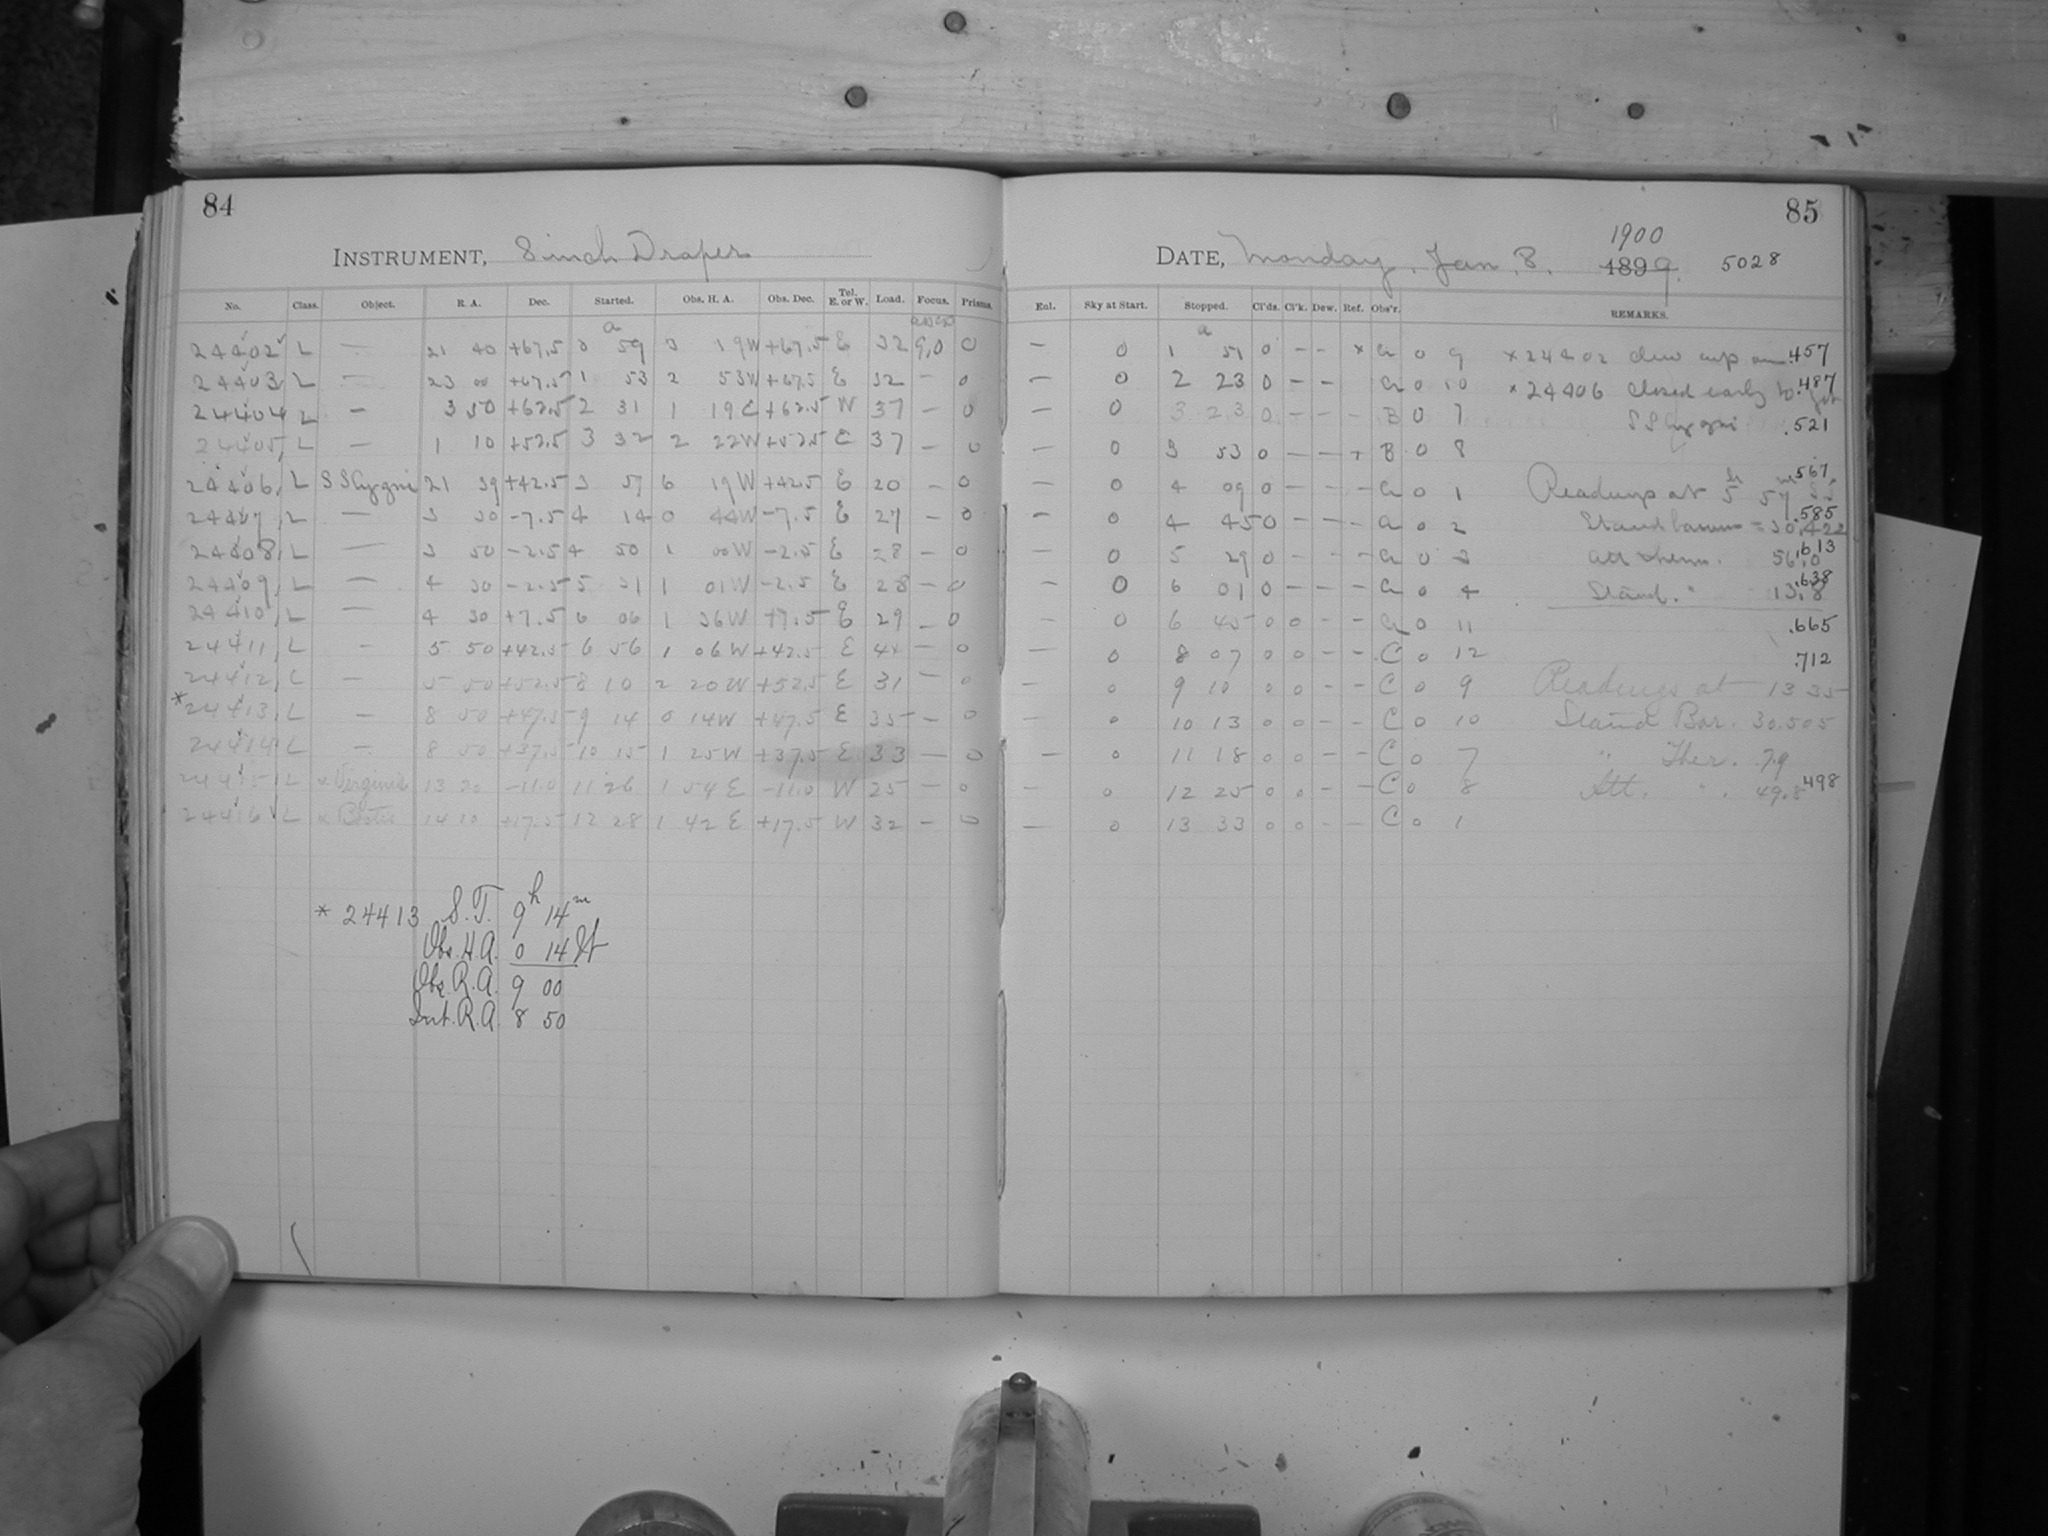 84
INSTRUMENT, 8 inch Draper
No. Class. Object. R. A. Dec. Started. Obs. H. A. Obs. Dec. Tel. E. or W. Load. Focus. Prisms.
24402 L — 21 40 +67.5 0 59 3 19W +67.5 E 32 9,0 0
24403 L — 23 00 +67.5 1 53 2 53W +67.5 E 32 — 0
24404 L — 3 50 +62.5 2 31 1 19E +62.5 W 37 — 0
24405 L — 1 10 +52.5 3 32 2 22W +52.5 E 37 — 0
24406 L SS Cygni 21 39 +42.5 3 57 6 19W +42.5 E 20 — 0
24407 L — 3 30 -7.5 4 14 0 44W -7.5 E 27 — 0
24408 L — 3 50 -2.5 4 50 1 00W -2.5 E 28 — 0
24409 L — 4 30 -2.5 5 31 1 01W -2.5 E 28 — 0
24410 L — 4 30 +7.5 6 06 1 36W +7.5 E 29 — 0
24411 L — 5 50 +42.5 6 56 1 06W +42.5 E 44 — 0
24412 L — 5 50 +52.5 8 10 2 20W +52.5 E 31 — 0
* 24413 L — 8 50 +47.5 9 14 0 14W +47.5 E 35 — 0
24414 L — 8 50 +37.5 10 15 1 25W +37.5 E 33 — 0
24415 L α Virginis 13 20 -11.0 11 26 1 54E -11.0 W 25 — 0
24416 L α Bootis 14 10 +17.5 12 28 1 42E +17.5 W 32 — 0
* 24413 S.T. 9h 14m
Obs. H.A. 0 14 W
Obs. R.A. 9 00
Int. R.A. 8 50
85
1900
DATE, Monday, Jan. 8, 1899. 5028
Enl. Sky at Start. Stopped. Cl'ds. Cl'k. Dew. Ref. Obs'r. REMARKS.
— 0 1 51 0 — — × a 0 9 × 24402 dew cap on .457
— 0 2 23 0 — — a 0 10 × 24406 closed early to .487
— 0 3 23 0 — — — B 0 7 SS Cygni .521
— 0 3 53 0 — — + B 0 8
— 0 4 09 0 — — — a 0 1 Readings at 5h 57m .567
— 0 4 45 0 — — — a 0 2 Stand barom = 30.422 .585
— 0 5 29 0 — — — a 0 3 att therm. 56.0 .613
— 0 6 01 0 — — — a 0 4 Stand. " 13.8 .638
— 0 6 45 0 0 — — a 0 11 .665
— 0 8 07 0 0 — — C 0 12 .712
— 0 9 10 0 0 — — C 0 9 Readings at 13 35
— 0 10 13 0 0 — — C 0 10 Stand Bar. 30.505
— 0 11 18 0 0 — — C 0 7 " Ther. 7.9
— 0 12 25 0 0 — — C 0 8 Att. " . 49.8 .498
— 0 13 33 0 0 — — C 0 1